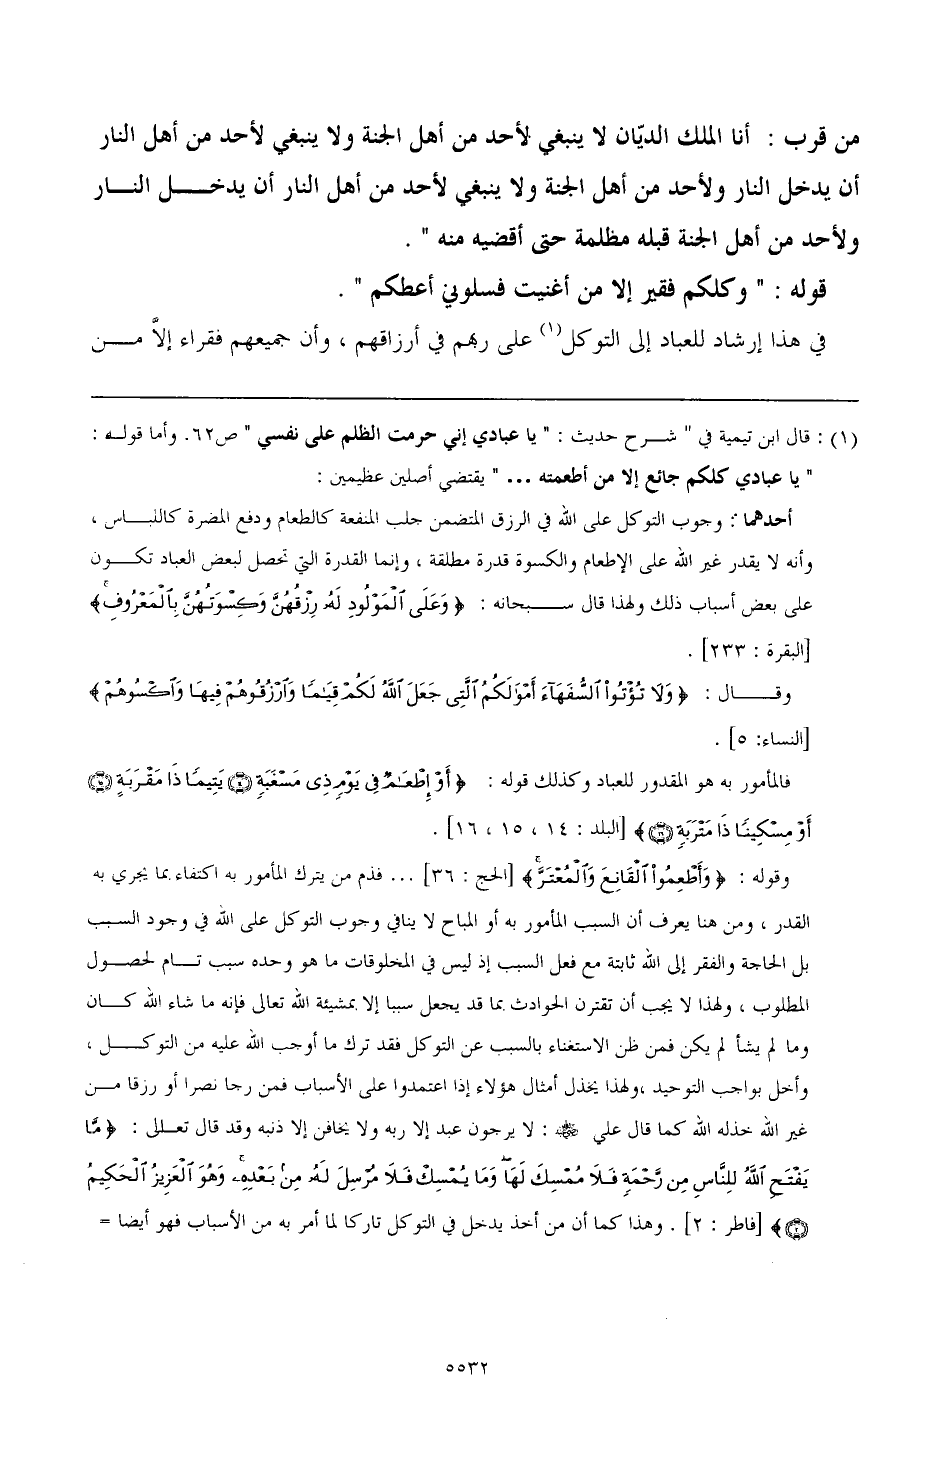 من قرب : أنا الملك الديّان لا ينبغي لأحد من أهل الجنة ولا ينبغي لأحد من أهل النار
أن يدخل النار ولأحد من أهل الجنة ولا ينبغي لأحد من أهل النار أن يدخـــل النـــار
ولأحد من أهل الجنة قبله مظلمة حتى أقضيه منه " .
قوله : " وكلكم فقير إلا من أغنيت فسلوني أعطكم " .
في هذا إرشاد للعباد إلى التوكل(١) على ربهم في أرزاقهم ، وأن جميعهم فقراء إلاَّ مـــن
(١) : قال ابن تيمية في " شـــرح حديث : " يا عبادي إني حرمت الظلم على نفسي " ص٦٢. وأما قولـه :
" يا عبادي كلكم جائع إلا من أطعمته ... " يقتضي أصلين عظيمين :
أحدهما : وجوب التوكل على الله في الرزق المتضمن جلب المنفعة كالطعام ودفع المضرة كاللبـــاس ،
وأنه لا يقدر غير الله على الإطعام والكسوة قدرة مطلقة ، وإنما القدرة التي تحصل لبعض العباد تكـــون
على بعض أسباب ذلك ولهذا قال ســـبحانه : ﴿ وَعَلَى ٱلْمَوْلُودِ لَهُۥ رِزْقُهُنَّ وَكِسْوَتُهُنَّ بِٱلْمَعْرُوفِ ۚ﴾
[البقرة : ٢٣٣] .
وقـــال : ﴿ وَلَا تُؤْتُوا۟ ٱلسُّفَهَآءَ أَمْوَٰلَكُمُ ٱلَّتِى جَعَلَ ٱللَّهُ لَكُمْ قِيَٰمًا وَٱرْزُقُوهُمْ فِيهَا وَٱكْسُوهُمْ ﴾
[النساء: ٥] .
فالمأمور به هو المقدور للعباد وكذلك قوله : ﴿ أَوْ إِطْعَٰمٌ فِى يَوْمٍ ذِى مَسْغَبَةٍ ۝١٤ يَتِيمًا ذَا مَقْرَبَةٍ ۝١٥
أَوْ مِسْكِينًا ذَا مَتْرَبَةٍ ۝١٦﴾ [البلد : ١٤ ، ١٥ ، ١٦] .
وقوله : ﴿ وَأَطْعِمُوا۟ ٱلْقَانِعَ وَٱلْمُعْتَرَّ ۚ﴾ [الحج : ٣٦] ... فذم من يترك المأمور به اكتفاء بما يجري به
القدر ، ومن هنا يعرف أن السبب المأمور به أو المباح لا ينافي وجوب التوكل على الله في وجود السبب
بل الحاجة والفقر إلى الله ثابتة مع فعل السبب إذ ليس في المخلوقات ما هو وحده سبب تـــام لحصـــول
المطلوب ، ولهذا لا يجب أن تقترن الحوادث بما قد يجعل سببا إلا بمشيئة الله تعالى فإنه ما شاء الله كـــان
وما لم يشأ لم يكن فمن ظن الاستغناء بالسبب عن التوكل فقد ترك ما أوجب الله عليه من التوكـــل ،
وأخل بواجب التوحيد ،ولهذا يخذل أمثال هؤلاء إذا اعتمدوا على الأسباب فمن رجا نصرا أو رزقا مـــن
غير الله خذله الله كما قال علي ﷺ : لا يرجون عبد إلا ربه ولا يخافن إلا ذنبه وقد قال تعـالى : ﴿ مَّا
يَفْتَحِ ٱللَّهُ لِلنَّاسِ مِن رَّحْمَةٍ فَلَا مُمْسِكَ لَهَا ۖ وَمَا يُمْسِكْ فَلَا مُرْسِلَ لَهُۥ مِنۢ بَعْدِهِۦ ۚ وَهُوَ ٱلْعَزِيزُ ٱلْحَكِيمُ
۝٢﴾ [فاطر : ٢] . وهذا كما أن من أخذ يدخل في التوكل تاركا لما أمر به من الأسباب فهو أيضا =
٥٥٣٢